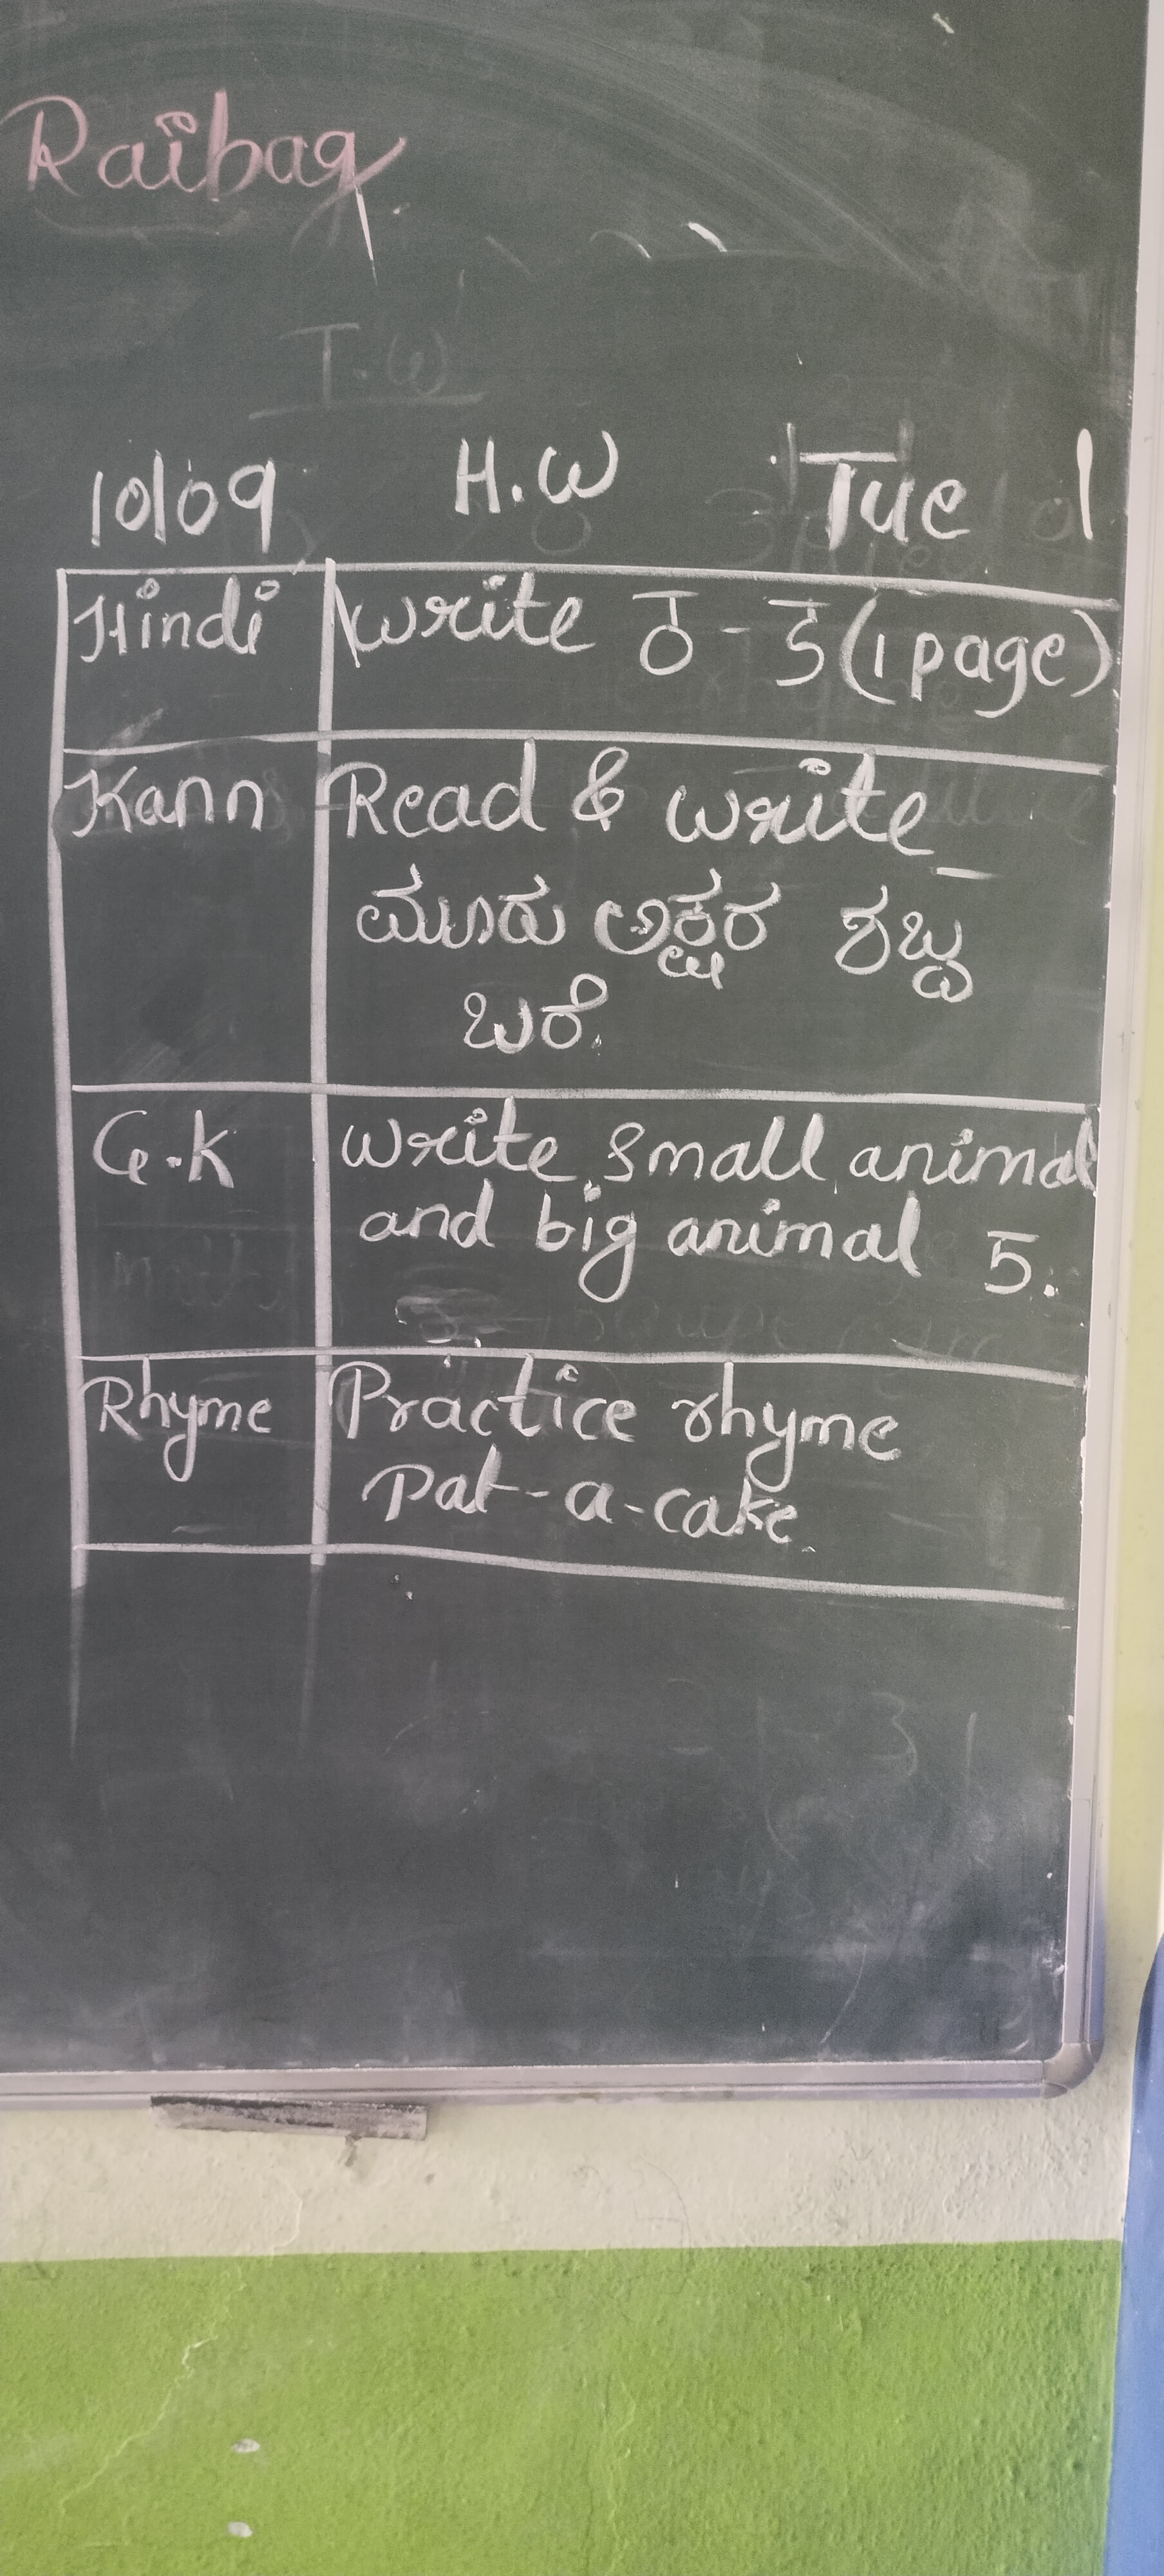 Raibag
T.W
10/09 H.W Tue
Hindi write ठ - ड (1 page)
Kann Read & write
ಮೂರು ಅಕ್ಷರ ಶಬ್ದ
ಬರೆ.
G.K write small animal
and big animal 5.
Rhyme Practice rhyme
Pat-a-cake.